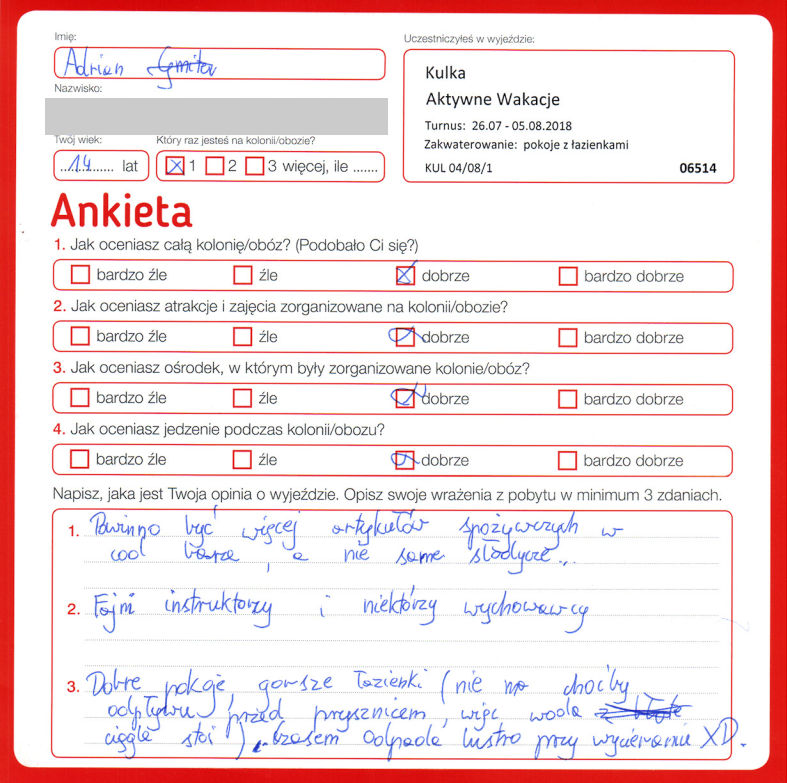 Imię:
Adrian Gmiter
Nazwisko:
Twój wiek:
14 lat
Który raz jesteś na kolonii/obozie?
1 2 3 więcej, ile .......
Uczestniczyłeś w wyjeździe:
Kulka
Aktywne Wakacje
Turnus: 26.07 - 05.08.2018
Zakwaterowanie: pokoje z łazienkami
KUL 04/08/1 06514
Ankieta
1. Jak oceniasz całą kolonię/obóz? (Podobało Ci się?)
bardzo źle źle dobrze bardzo dobrze
2. Jak oceniasz atrakcje i zajęcia zorganizowane na kolonii/obozie?
bardzo źle źle dobrze bardzo dobrze
3. Jak oceniasz ośrodek, w którym były zorganizowane kolonie/obóz?
bardzo źle źle dobrze bardzo dobrze
4. Jak oceniasz jedzenie podczas kolonii/obozu?
bardzo źle źle dobrze bardzo dobrze
Napisz, jaka jest Twoja opinia o wyjeździe. Opisz swoje wrażenia z pobytu w minimum 3 zdaniach.
1. Powinno być więcej artykułów spożywczych w
cool barze, a nie same słodycze...
2. Fajni instruktorzy i niektórzy wychowawcy
3. Dobre pokoje, gorsze łazienki (nie ma choćby
odpływu przed prysznicem, więc woda
ciągle stoi). Czasem odpada lustro przy wycieraniu XD.